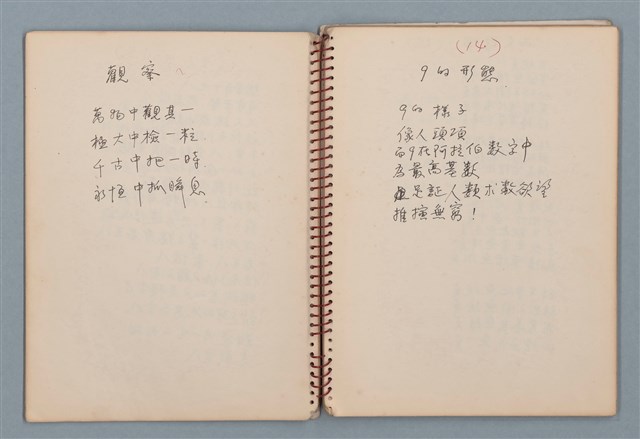 觀察
萬物中觀其一
極大中檢一粒
千古中把一時
永恒中抓瞬息
(14)
9的形態
9的樣子
像人頭項
而9在阿拉伯数字中
為最高基数
足証人類求数欲望
推演無窮！